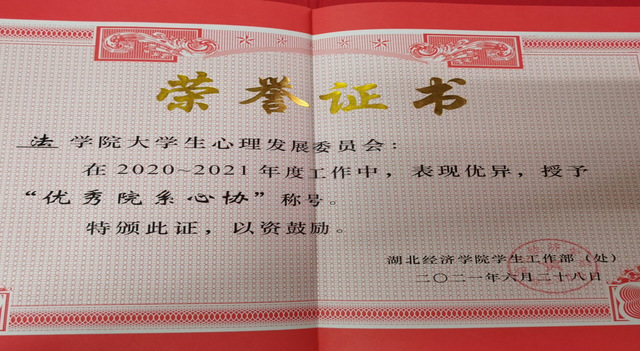 荣誉证书
法学院大学生心理发展委员会：
在2020~2021年度工作中，表现优异，授予
“优秀院系心协”称号。
特颁此证，以资鼓励。
湖北经济学院学生工作部（处）
二〇二一年六月二十八日